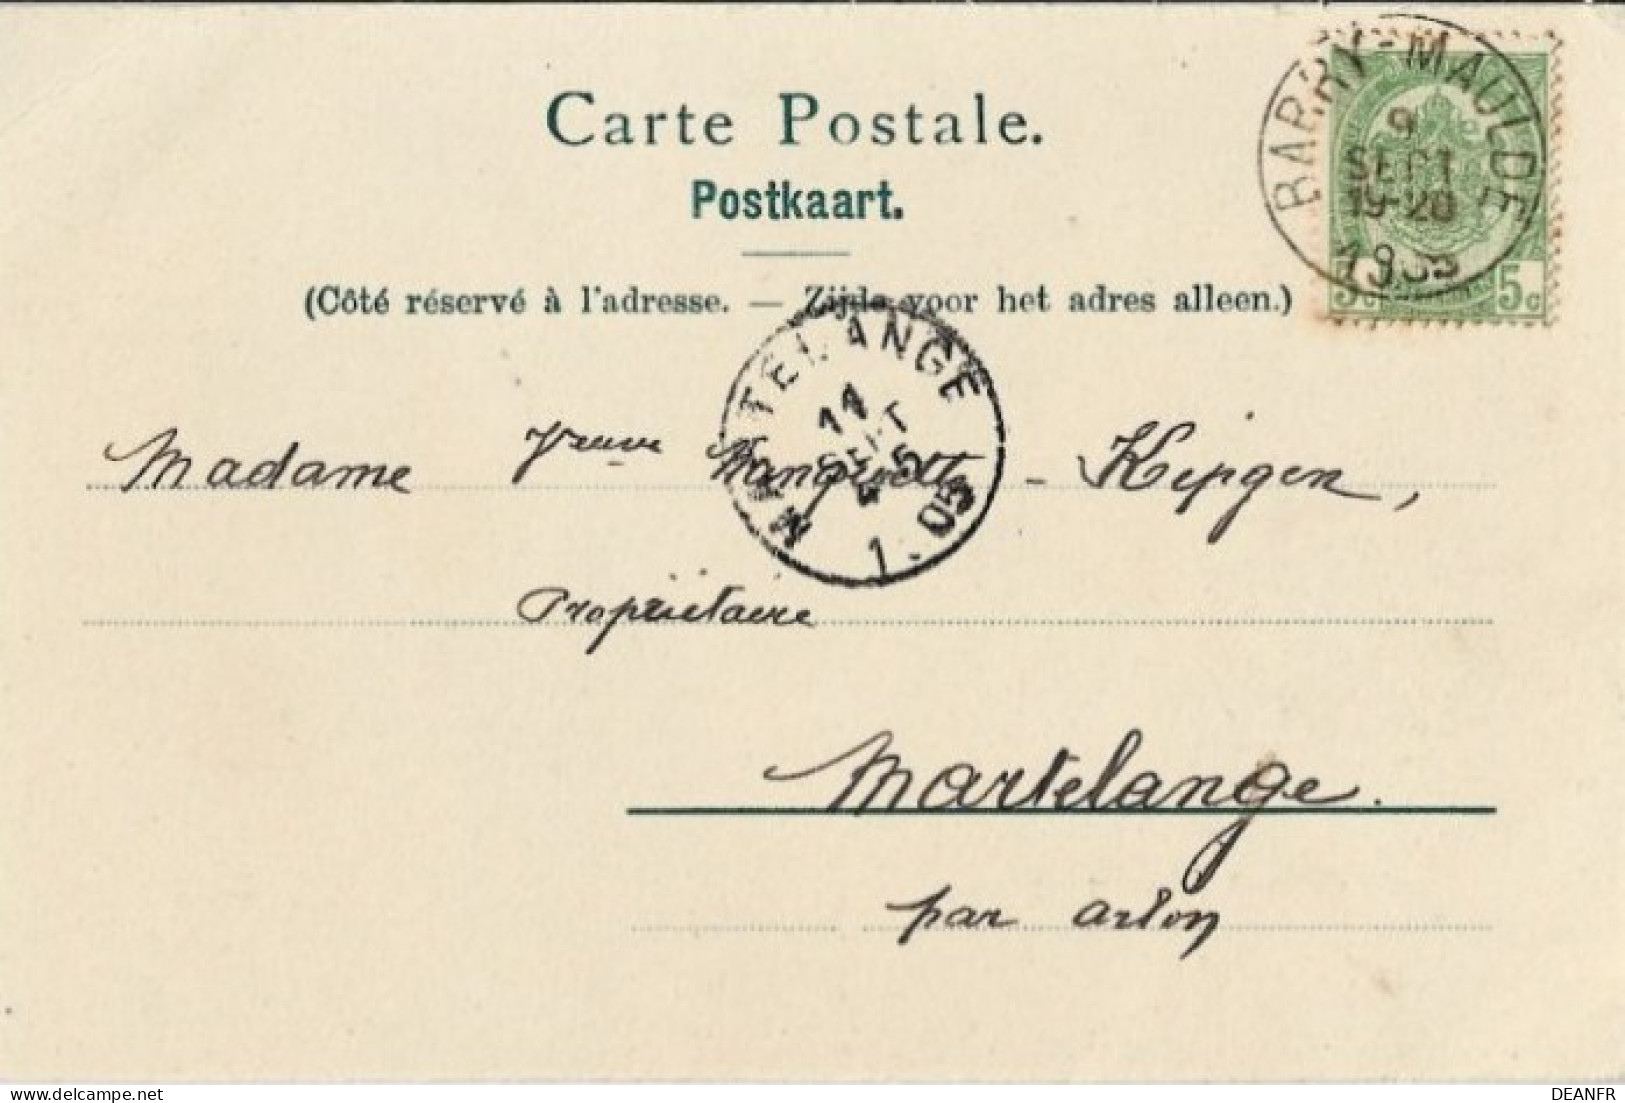 Carte Postale.
Postkaart.
(Côté réservé à l'adresse. — Zijde voor het adres alleen.)
BARRY-MAULDE
9
SEPT
19-20
5c 5c
MARTELANGE
11
SEPT
1.05
Madame Veuve - Kepgen,
Propriétaire
Martelange.
par arlon
DEANFR